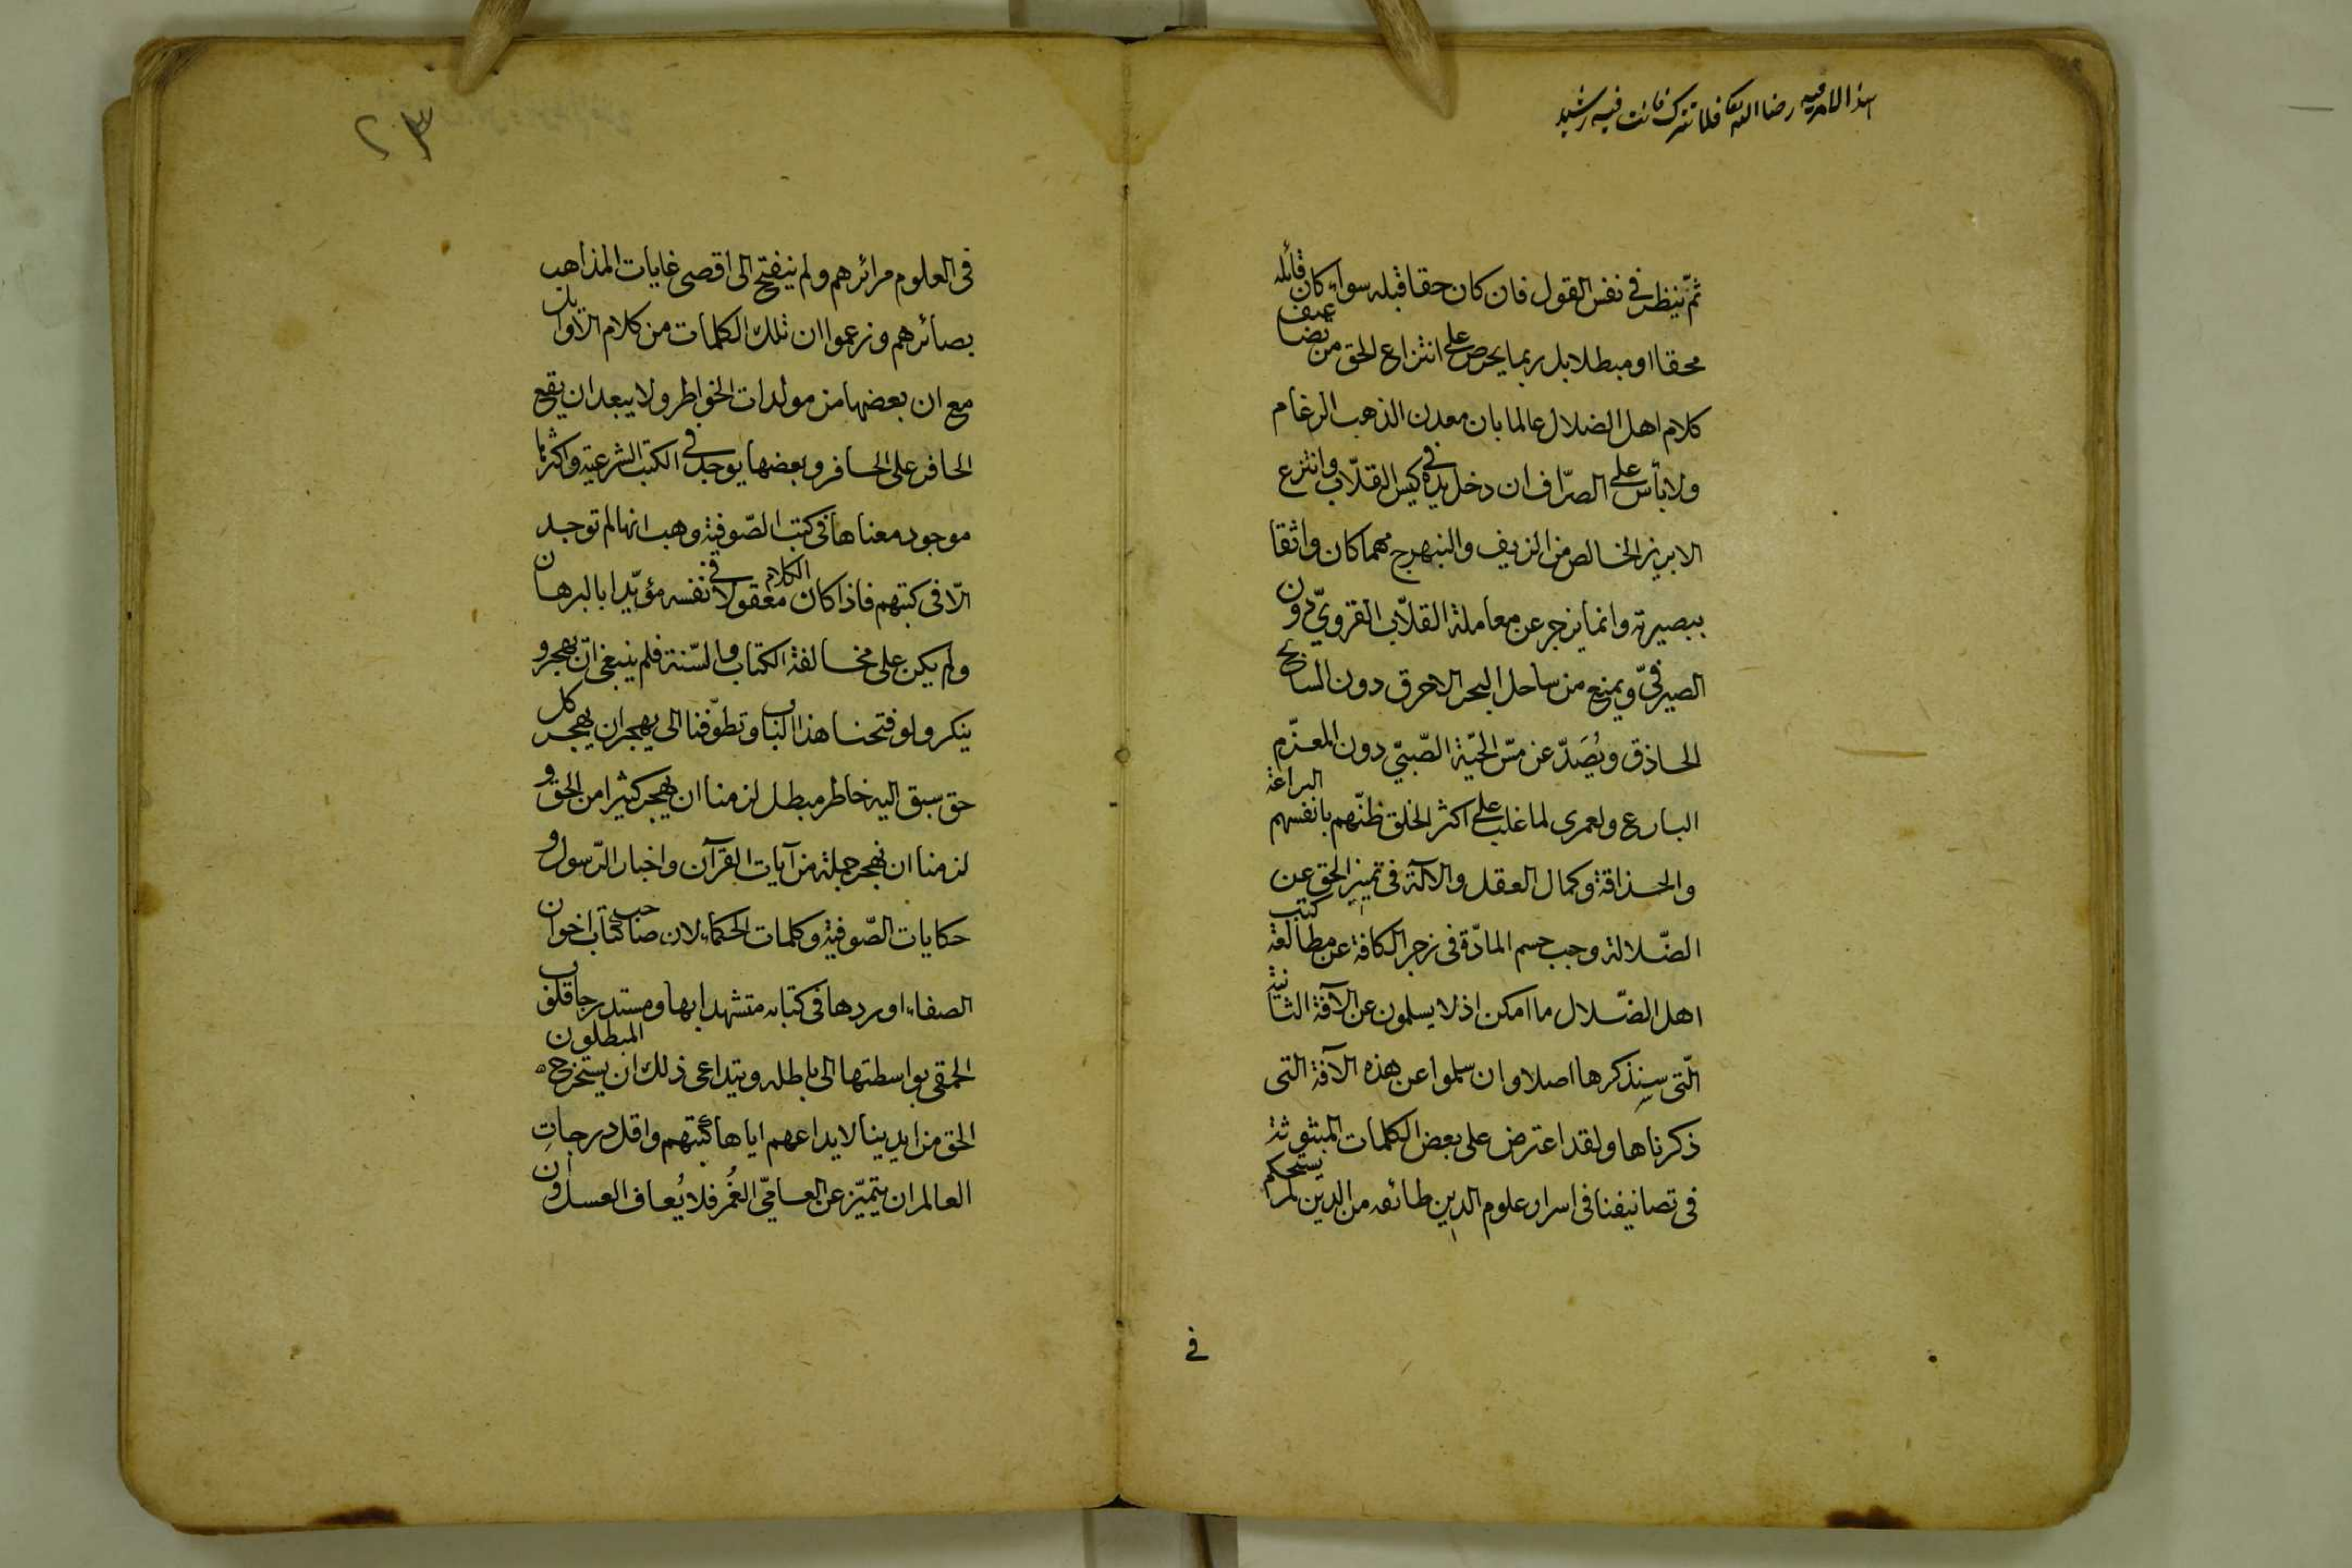 هذا الامر فيه رضا الله تعا فلا تترك فانت فيه رشيد
ثمّ ينظر فى نفس القول فان كان حقا قبله سواء كان قائله
محقا او مبطلا بل ربما يحرص على انتزاع الحق من تضاعيف
كلام اهل الضلال عالما بان معدن الذهب الرغام
ولا بأس على الصرّاف ان دخل يده فى كيس القلّاب وانتزع
الابريز الخالص من الزيف والنبهرج مهما كان واثقا
ببصيرته وانما يزجر عن معاملة القلّاب القروىّ دون
الصيرفىّ ويمنع من ساحل البحر الاخرق دون السابح
الحاذق ويُصَدّ عن مسّ الحيّة الصّبىّ دون المعزّم
البارع ولعمرى لما غلب على اكثر الخلق ظنّهم بانفسهم البراعة
والحذاقة وكمال العقل والآلة فى تميز الحق عن
الضّلالة وجب حسم المادّة فى زجر الكافة عن مطالعة كتب
اهل الضّلال ما امكن اذ لا يسلمون عن الآفة الثانية
الّتى سنذكرها اصلا وان سلموا عن هذه الآفة التى
ذكرناها ولقد اعترض على بعض الكلمات المبثوثة
فى تصانيفنا فى اسرار علوم الدين طائفه من الدين لم يستحكم
فى
٢٣
فى العلوم مرائرهم ولم ينفتح الى اقصى غايات المذاهب
بصائرهم وزعموا ان تلك الكلمات من كلام الاوايل
مع ان بعضها من مولدات الخواطر ولا يبعد ان يقع
الحافر على الحافر وبعضها يوجد فى الكتب الشرعيّة واكثرها
موجود معناها فى كتب الصّوفية وهب انها لم توجد
الّا فى كتبهم فاذا كان الكلام معقولا فى نفسه مؤيّدا بالبرهان
ولم يكن على مخالفة الكتاب والسّنة فلم ينبغى ان يهجر و
ينكر ولو فتحنا هذا الباب وتطوّفنا الى يهجر ان يهجر كل
حق سبق اليه خاطر مبطل لزمنا ان يهجر كثيرا من الحق و
لزمنا ان نهجر جملة من آيات القرآن واخبار الرّسول و
حكايات الصّوفية وكلمات الحكماء لان صاحب كتاب اخوان
الصفاء اوردها فى كتابه متشهدا بها ومستدرجا قلوب
الحمقى بواسطتها الى باطله ويتداعى ذلك ان يستخرج المبطلون
الحق من ايدينا لايداعهم اياها كتبهم واقل درجات
العالم ان يتميّز عن العامىّ الغُمر فلا يُعاف العسل وان